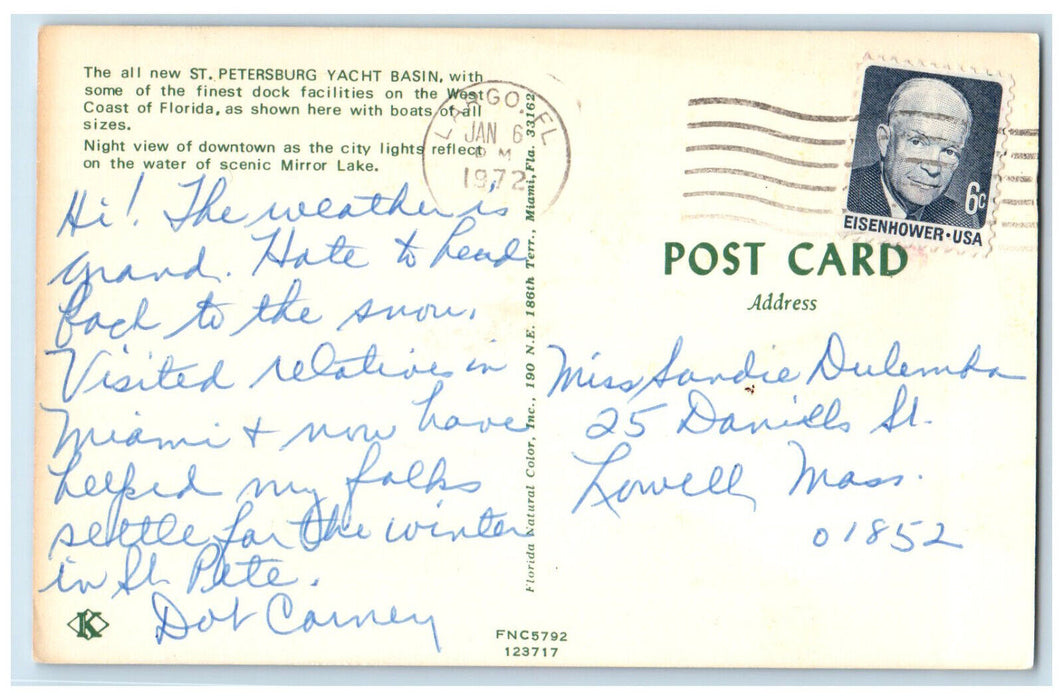 The all new ST. PETERSBURG YACHT BASIN, with
some of the finest dock facilities on the West
Coast of Florida, as shown here with boats of all
sizes.
Night view of downtown as the city lights reflect
on the water of scenic Mirror Lake.
Hi! The weather is
grand. Hate to head
back to the snow.
Visited relatives in
Miami + now have
helped my folks
settle for the winter
in St. Pete.
Dot Carney
K
Florida Natural Color, Inc., 190 N.E. 186th Terr., Miami, Fla. 33162
FNC5792
123717
LARGO, FL
JAN 6
PM
1972
6c
EISENHOWER·USA
POST CARD
Address
Miss Sandie Dulemba
25 Daniells St.
Lowell, Mass.
01852